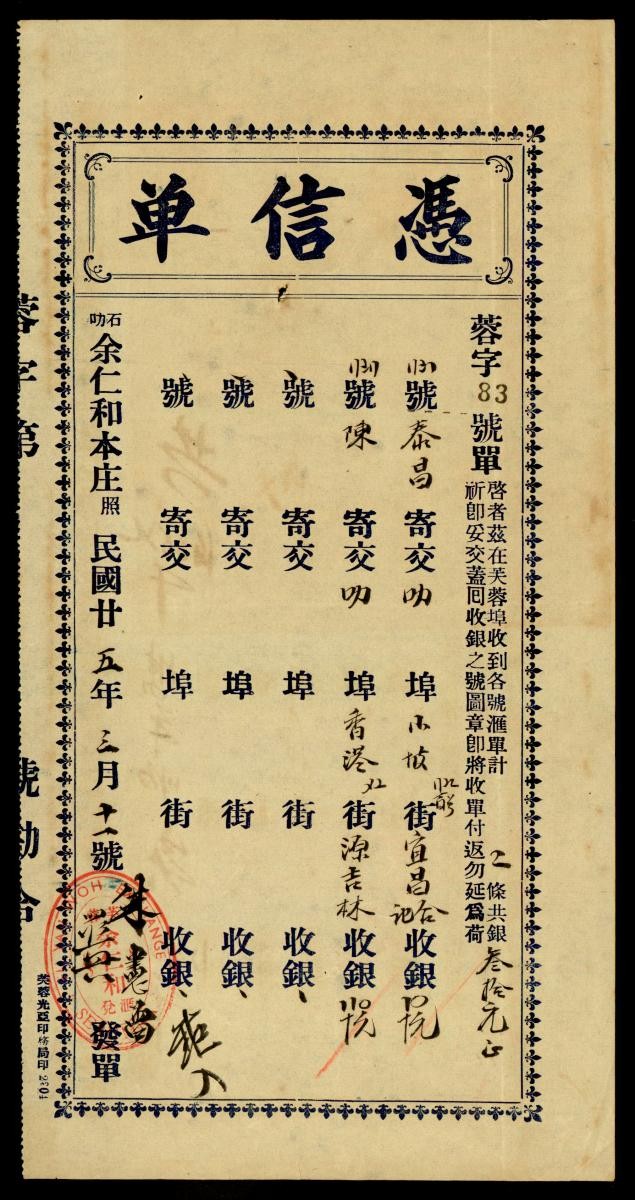 憑信单
蓉字83號單
啓者茲在芙蓉埠收到各號滙單計2條共銀叁拾元正
祈即妥交蓋囘收銀之號圖章即將收單付返勿延爲荷
號泰昌寄交叻埠小坡街宜昌合記收銀
號陳寄交叻埠香港街源吉林收銀
號寄交埠街收銀
號寄交埠街收銀
號寄交埠街收銀
石叻余仁和本庄照民國廿五年三月十一號發單
芙蓉光亞印務局印 2304
蓉字第
號勘合
余仁和
滙兌